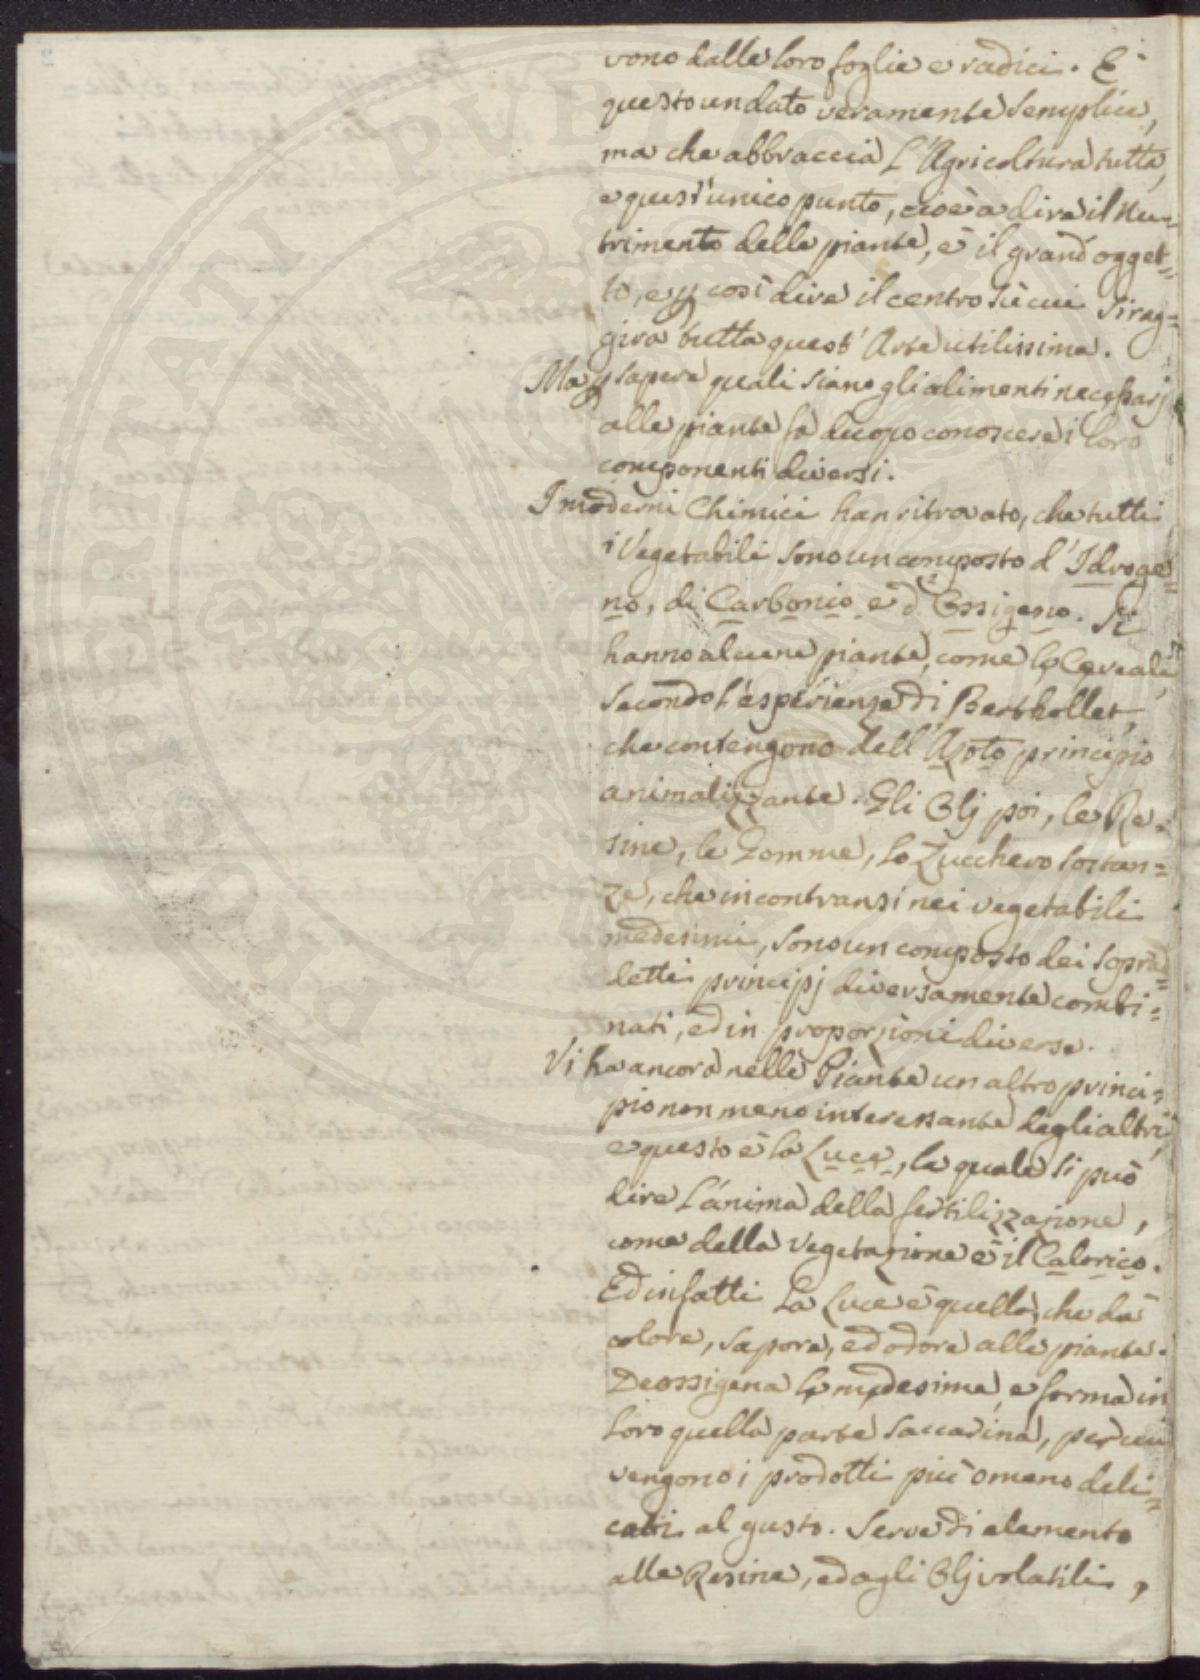 vono dalle loro foglie e radici. E'
questo un dato veramente semplice,
ma che abbraccia l'Agricoltura tutta,
e quest'unico punto, cioè a dire il nu=
trimento delle piante, è il grand'ogget=
to, e p così dire il centro sù cui si rag=
gira tutta quest'Arte utilissima.
Ma p sapere quali siano gli alimenti necessarj
alle piante fà duopo conoscere i loro
componenti diversi.
I moderni Chimici han ritrovato, che tutti
i Vegetabili sono un composto d'Idroge=
no, di Carbonio e d'Ossigeno. Si
hanno alcune piante, come le Cereali,
secondo l'esperienze di Berthollet,
che contengono dell'Azoto principio
animalizzante. Gli Olj poi, le Re=
sine, le Gomme, lo Zucchero sostan=
ze, che incontransi nei vegetabili
medesimi, sono un composto dei sopra=
detti principj diversamente combi=
nati, ed in proporzioni diverse.
Vi ha ancora nelle Piante un altro princi=
pio non meno interessante degli altri,
e questo è la Luce, la quale si può
dire l'ánima della fertilizzazione,
come della vegetazione è il Calorico.
Ed infatti La Luce è quella, che dà
colore, sapore, ed odore alle piante.
Deossigena le medesime, e forma in
loro quella parte saccarina, per cui
vengono i prodotti più o meno deli=
cati al gusto. Serve di elemento
alle Resine, ed agli Olj volatili,